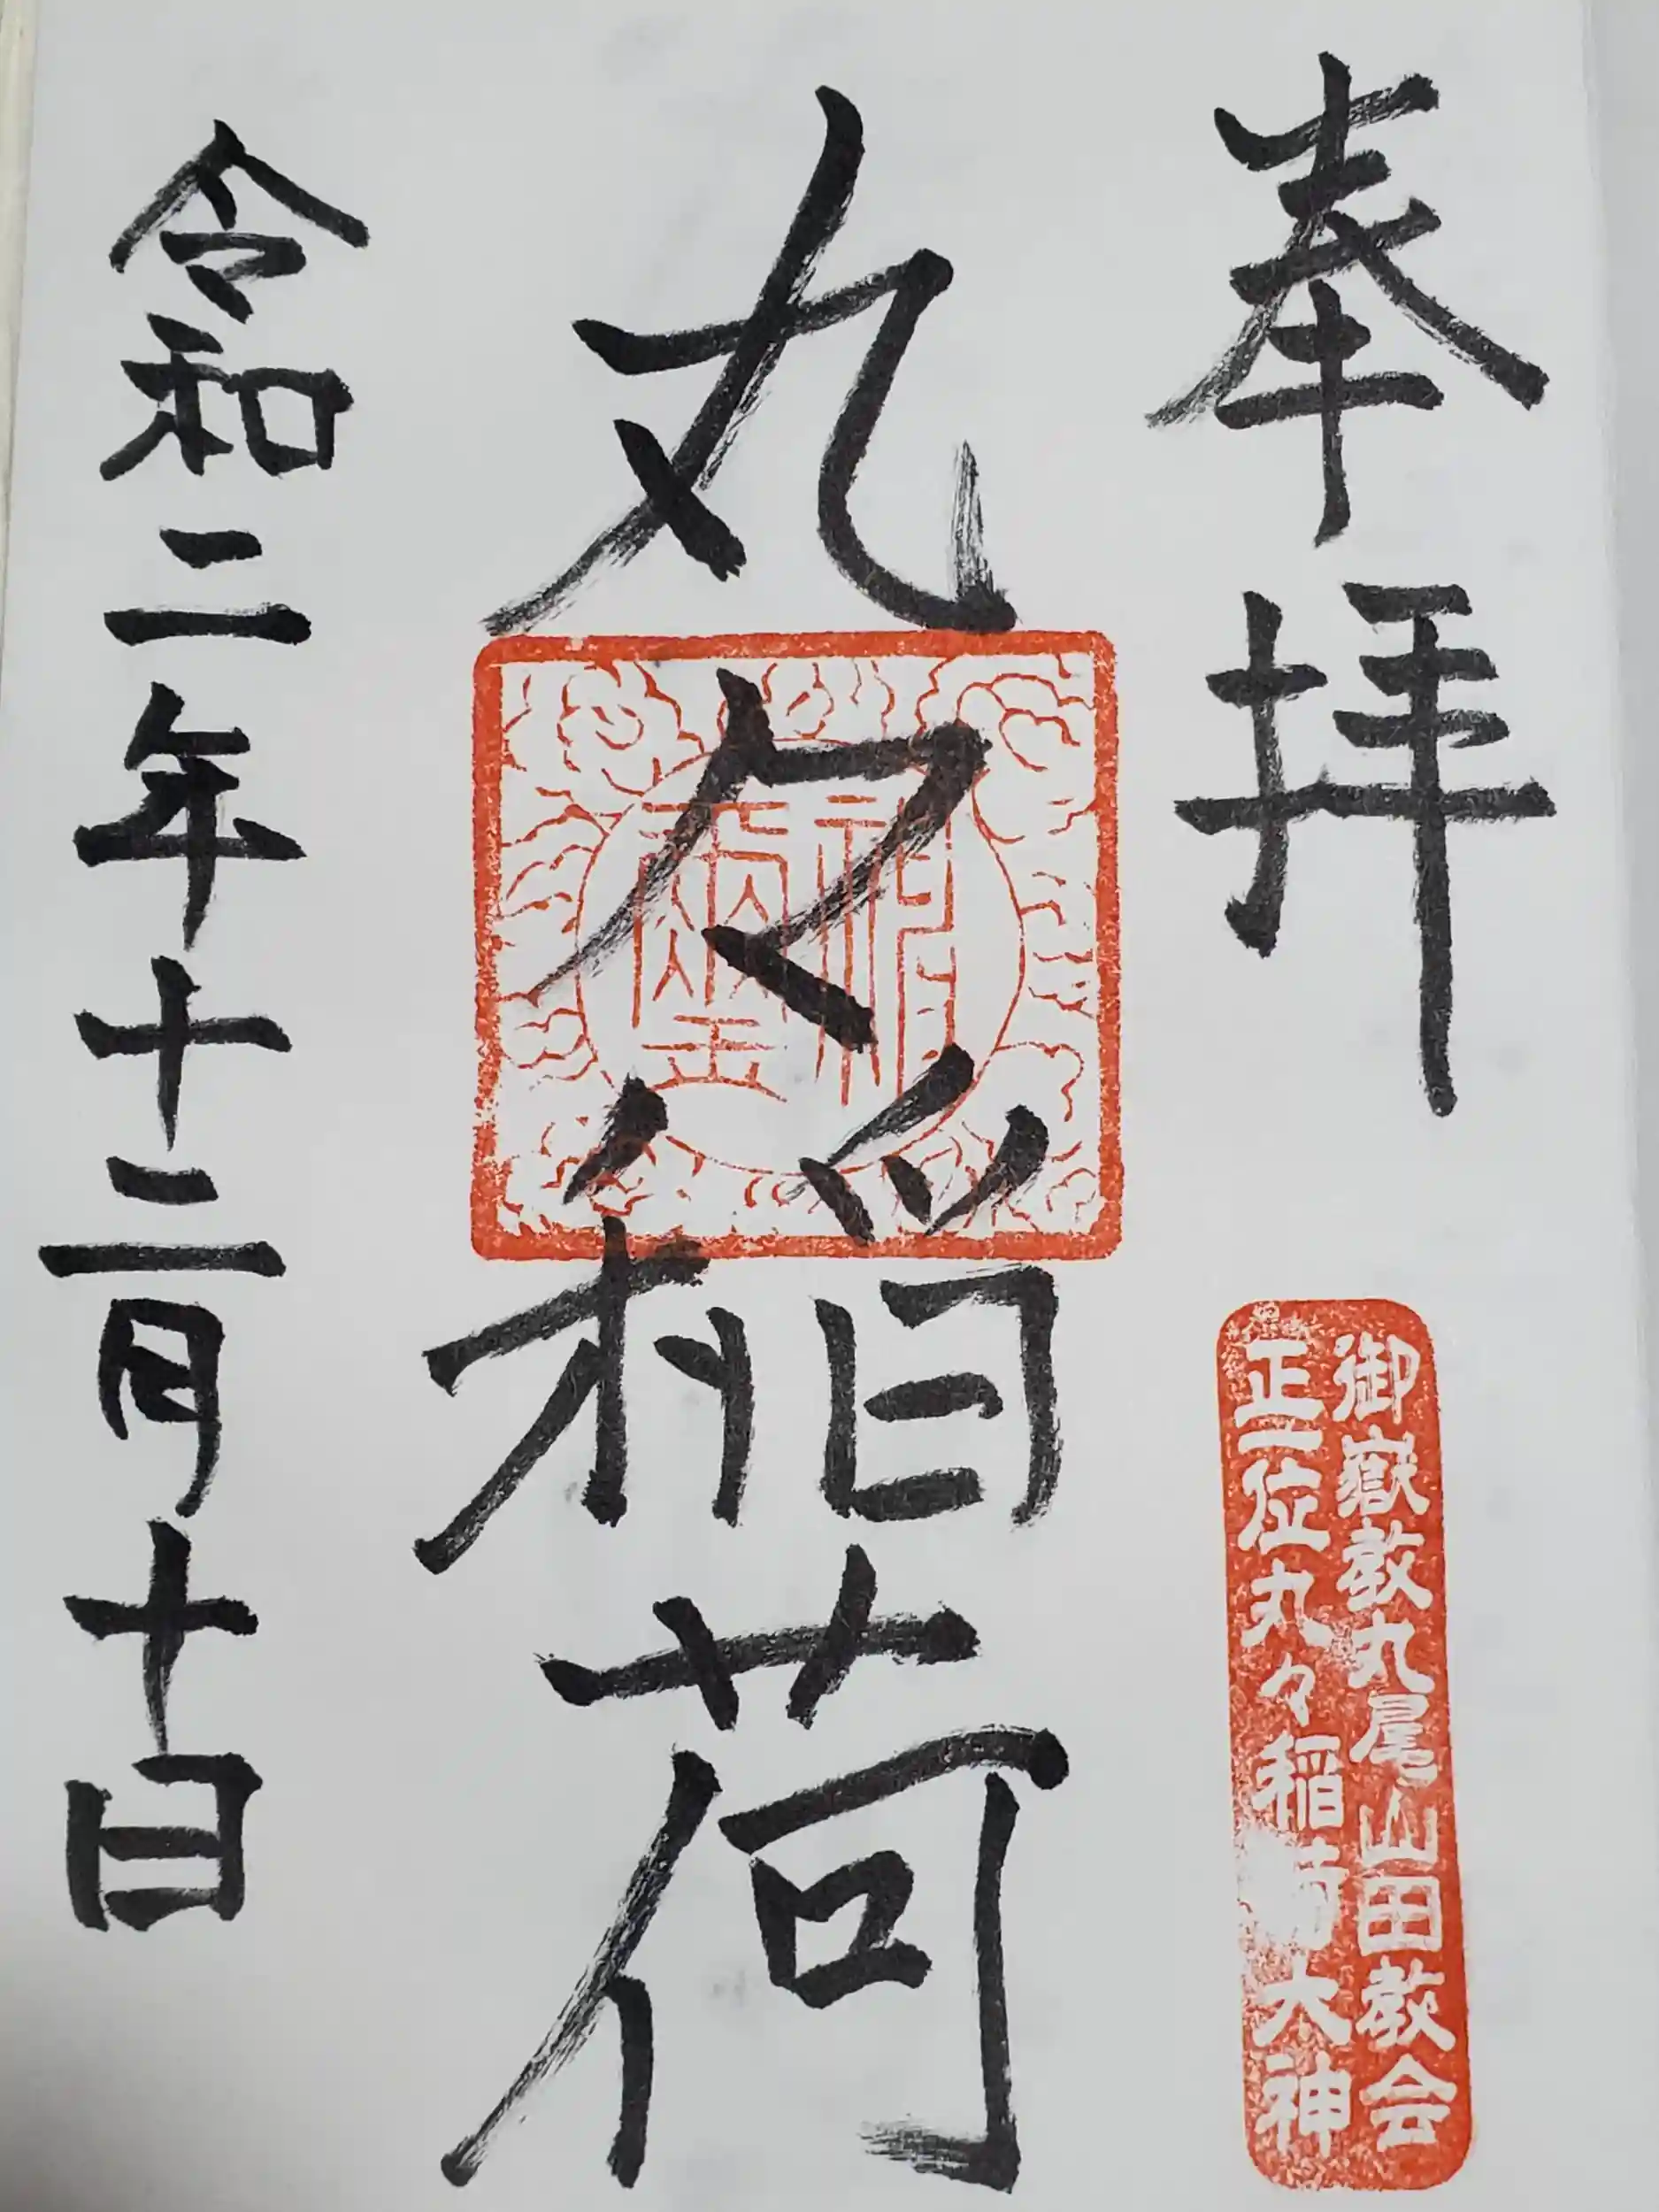 奉拝
御嶽教丸尾山田教会
正一位丸々稲荷大神
丸々稲荷
神璽
令和二年十二月十日